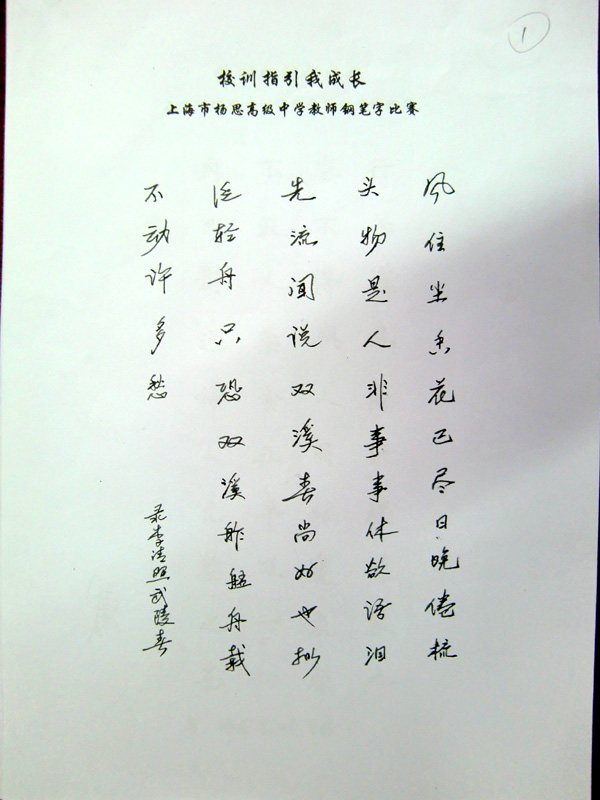 1
校训指引我成长
上海市杨思高级中学教师钢笔字比赛
风住尘香花已尽日晚倦梳
头物是人非事事休欲语泪
先流闻说双溪春尚好也拟
泛轻舟只恐双溪舴艋舟载
不动许多愁
录李清照武陵春